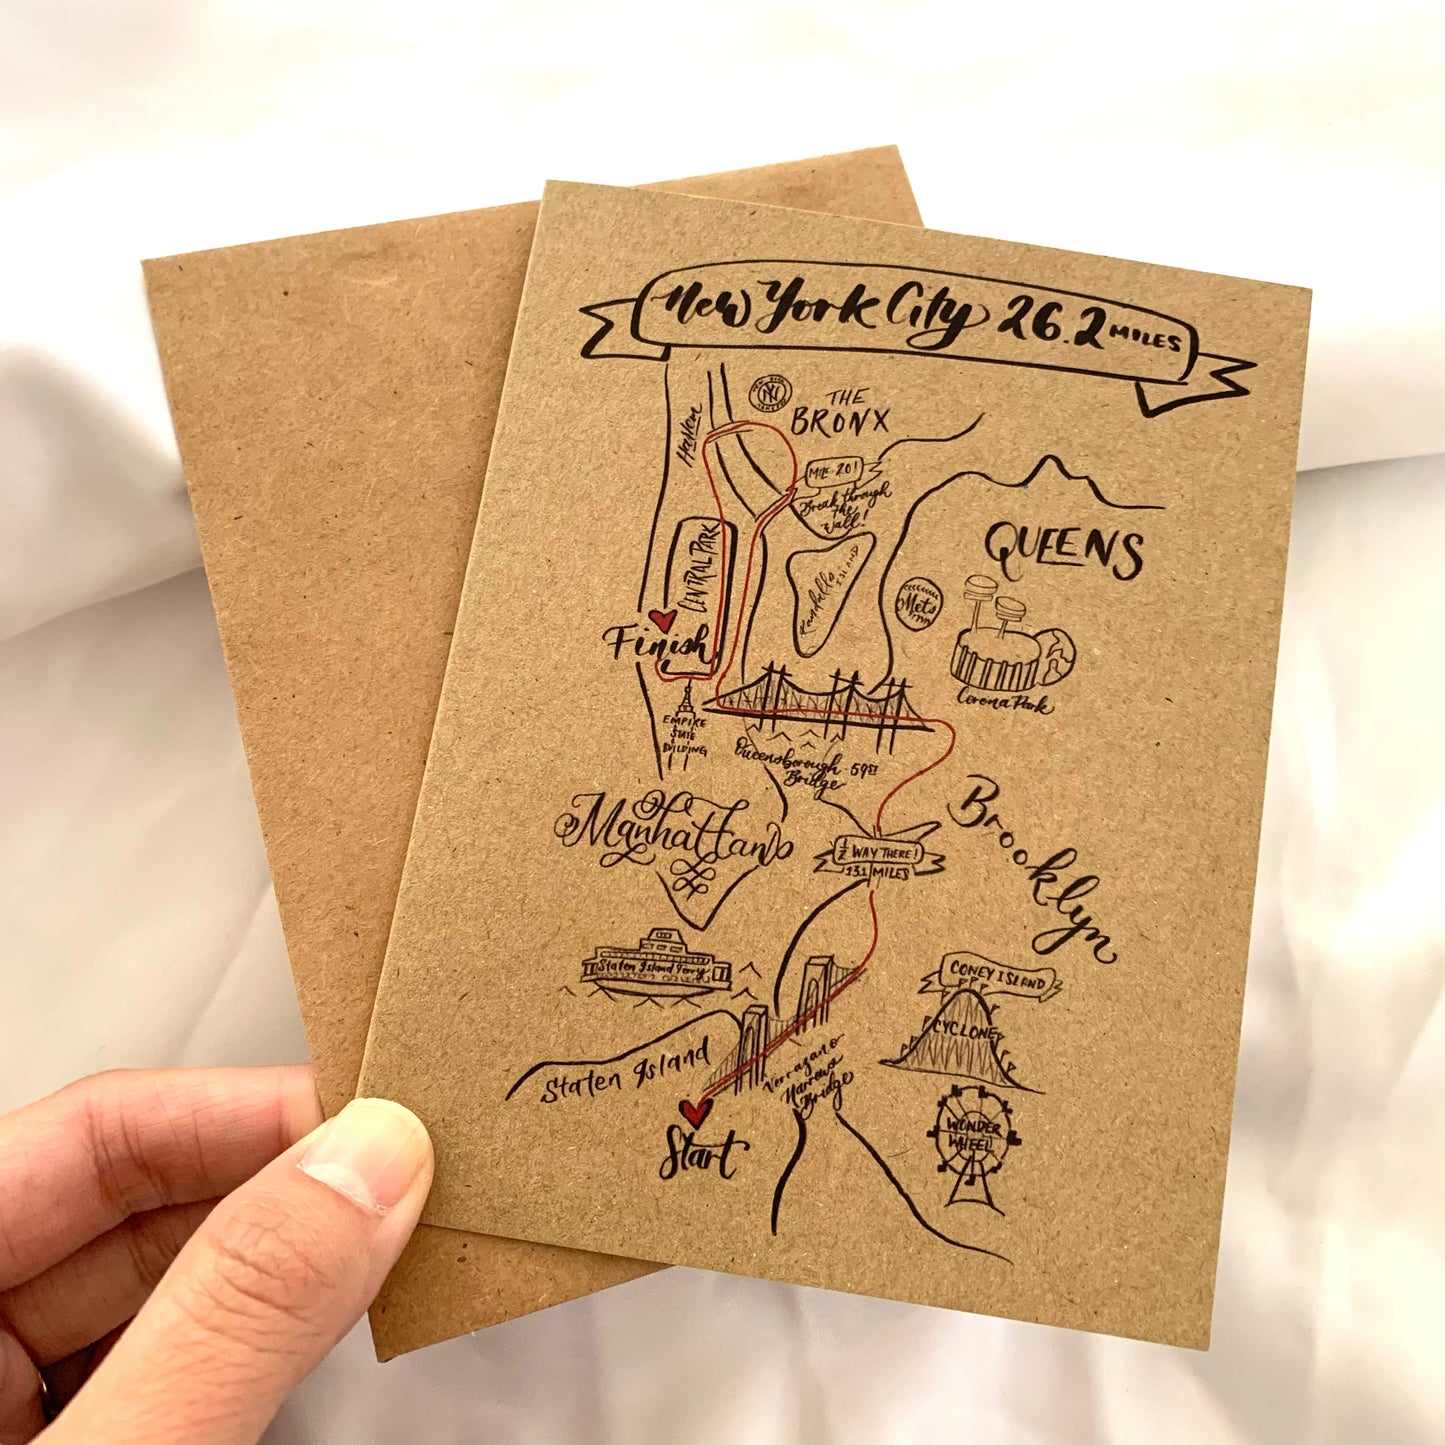 New York City 26.2 MILES
NEW YORK
NY
YANKEES
THE
BRONX
Harlem
MILE 20!
Break through
the
wall!
QUEENS
CENTRAL PARK
Randalls
ISLAND
Mets
Finish
Corona Park
EMPIRE
STATE
BUILDING
Queensborough - 59ST
Bridge
Manhattan
Brooklyn
1/2 WAY THERE!
13.1 MILES
Staten Island Ferry
CONEY ISLAND
CYCLONE
Staten Island
Verrazano
Narrows
Bridge
Start
WONDER
WHEEL